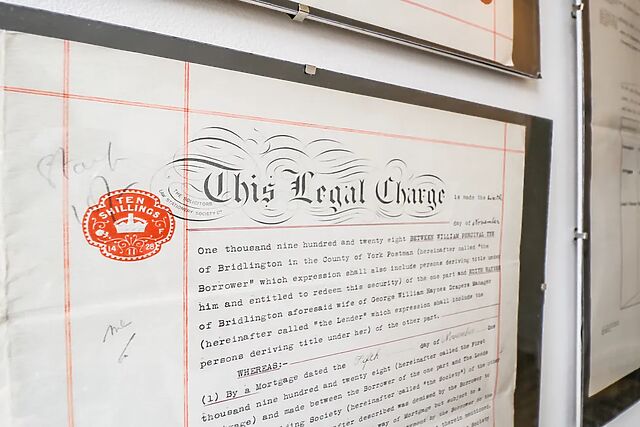 Stamp
10/-
TEN
SHILLINGS
14 11 28
THE SOLICITORS
LAW STATIONERY SOCIETY LD
This Legal Charge
is made the
day of November
One thousand nine hundred and twenty eight BETWEEN WILLIAM PERCIVAL
of Bridlington in the County of York Postman (hereinafter called "the
Borrower" which expression shall also include persons deriving title under
him and entitled to redeem this security) of the one part and EDITH HAYNES
of Bridlington aforesaid wife of George William Haynes Drapers Manager
(hereinafter called "the Lender" which expression shall include the
persons deriving title under her) of the other part.
WHEREAS:-
(1) By a Mortgage dated the Fifth day of November One
thousand nine hundred and twenty eight (hereinafter called the First
Mortgage) and made between the Borrower of the one part and The Leeds
Building Society (hereinafter called "the Society") of the other
after described was demised by the Borrower to
way of Mortgage but subject to a
by the Borrower to the
herein mentioned.
Society